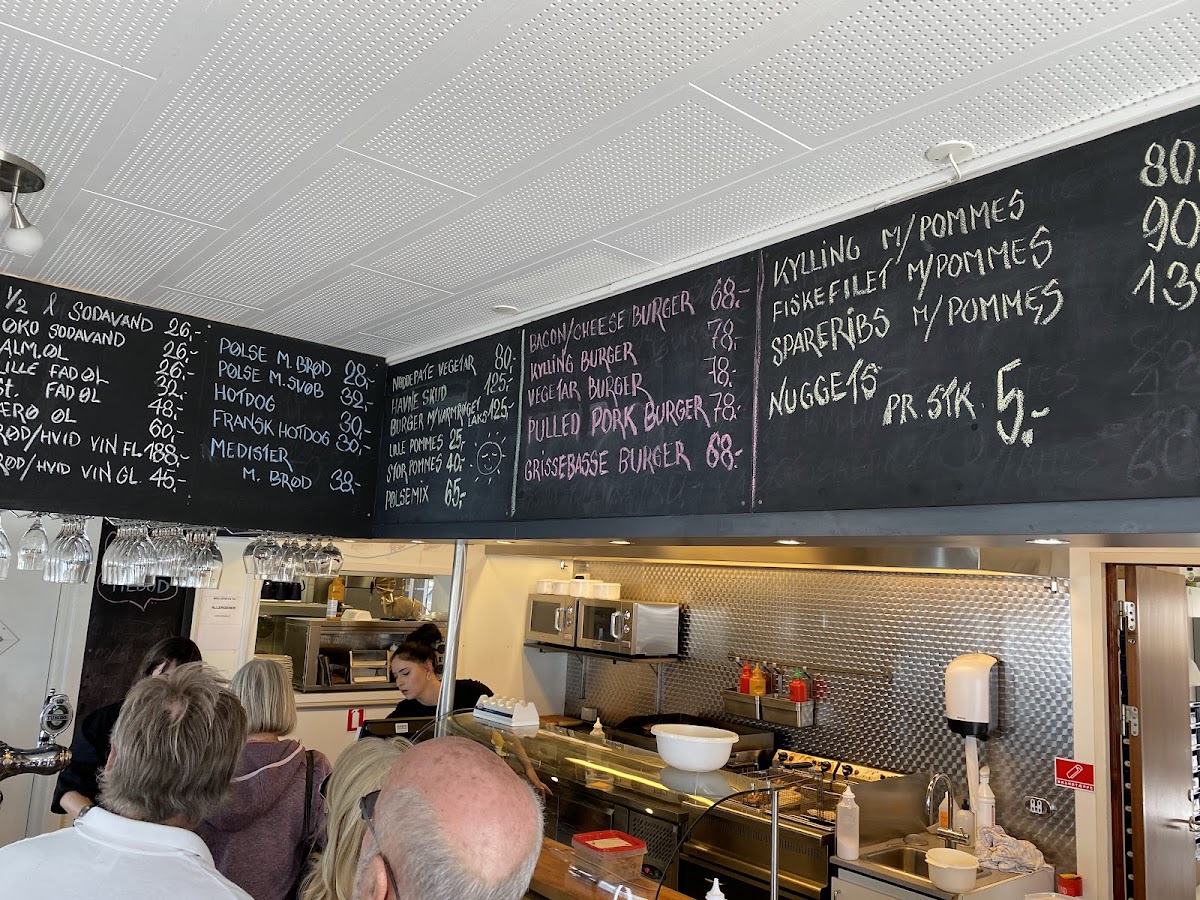 1/2 l SODAVAND 26,-
ØKO SODAVAND 26,-
ALM. ØL 26,-
LILLE FADØL 32,-
ST. FADØL 48,-
ÆRØ ØL 60,-
RØD/HVID VIN FL 188,-
RØD/HVID VIN GL. 45,-
PØLSE M. BRØD 28,-
PØLSE M. SVØB 32,-
HOTDOG 30,-
FRANSK HOTDOG 30,-
MEDISTER
M. BRØD 38,-
VEGETAR 80,-
HAVNE SKUD 125,-
BURGER M/VARMRØGET LAKS 125,-
LILLE POMMES 25,-
STOR POMMES 40,-
PØLSEMIX 65,-
BACON/CHEESE BURGER 68,-
KYLLING BURGER 78,-
VEGETAR BURGER 78,-
PULLED PORK BURGER 78,-
GRISSEBASSE BURGER 68,-
KYLLING M/POMMES 80,
FISKEFILET M/POMMES 90
SPARERIBS M/POMMES
NUGGETS PR. STK. 5,-
ALLERGENER